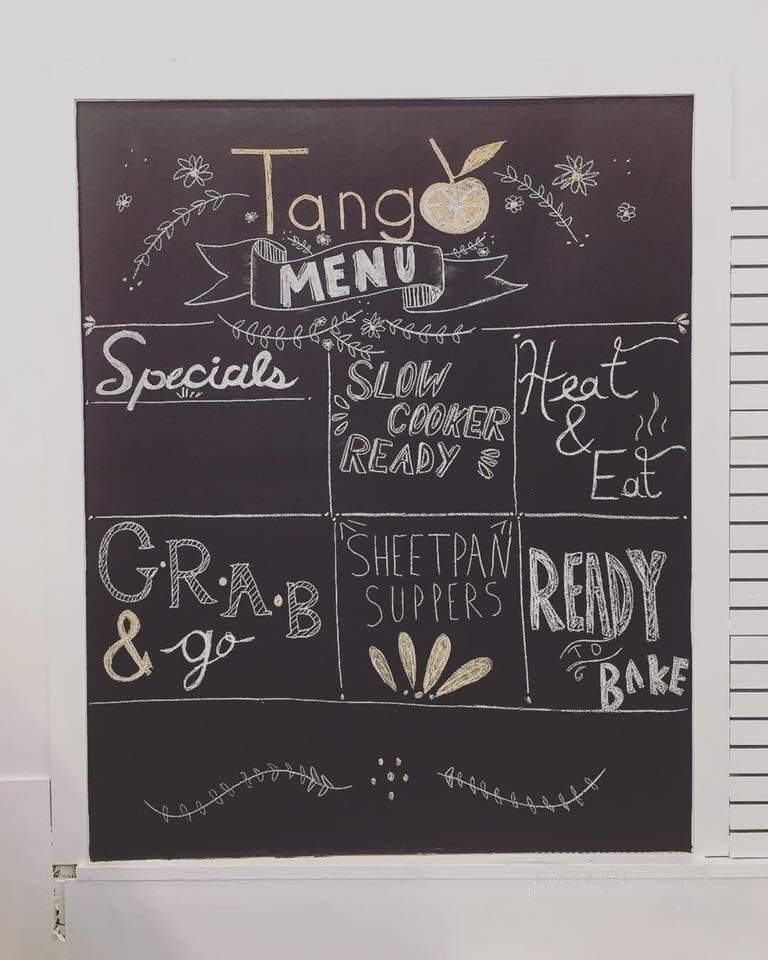 Tango
MENU
Specials
SLOW
COOKER
READY
Heat
&
Eat
G.R.A.B
& go
SHEETPAN
SUPPERS
READY
TO
BAKE